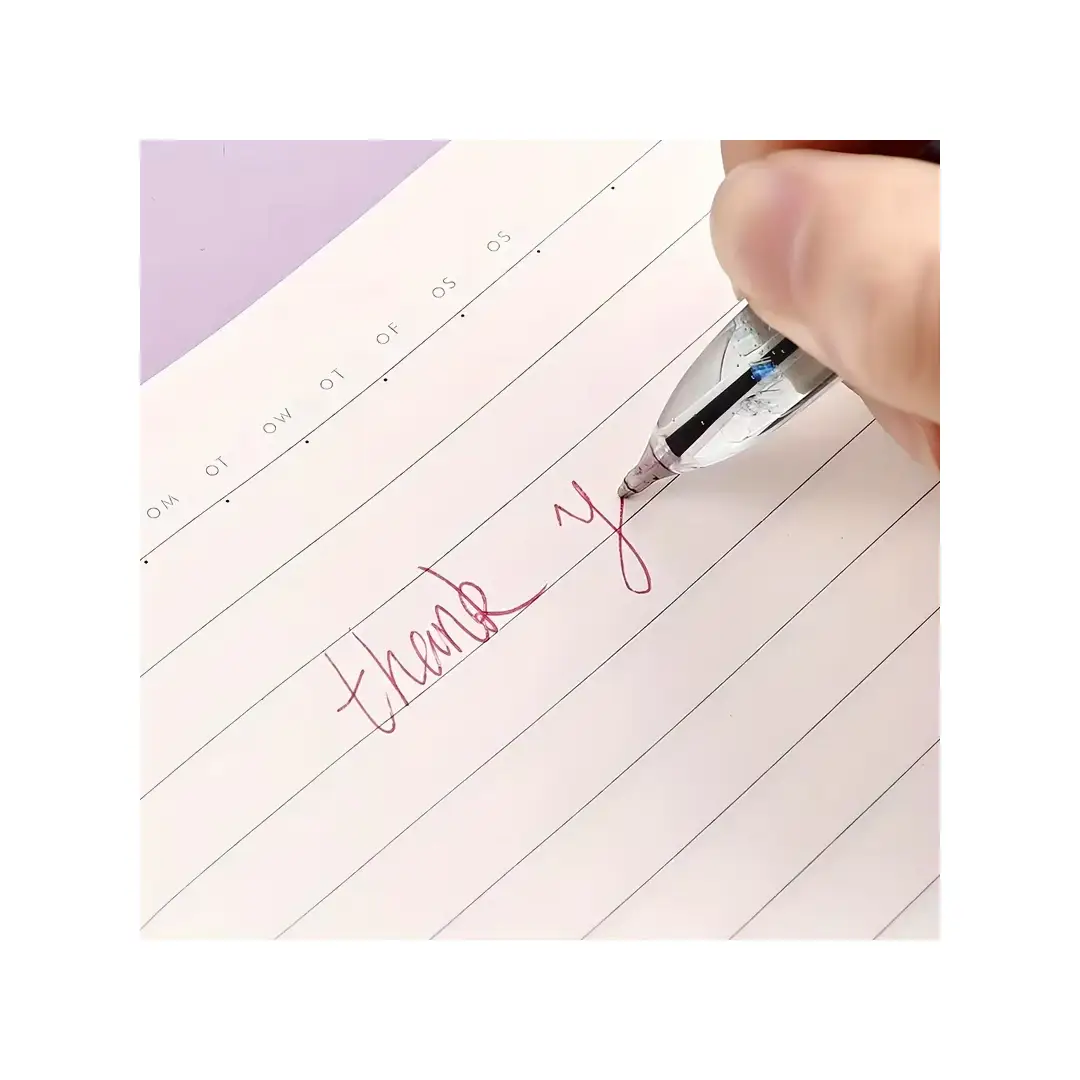 OM OT OW OT OF OS OS
thank y